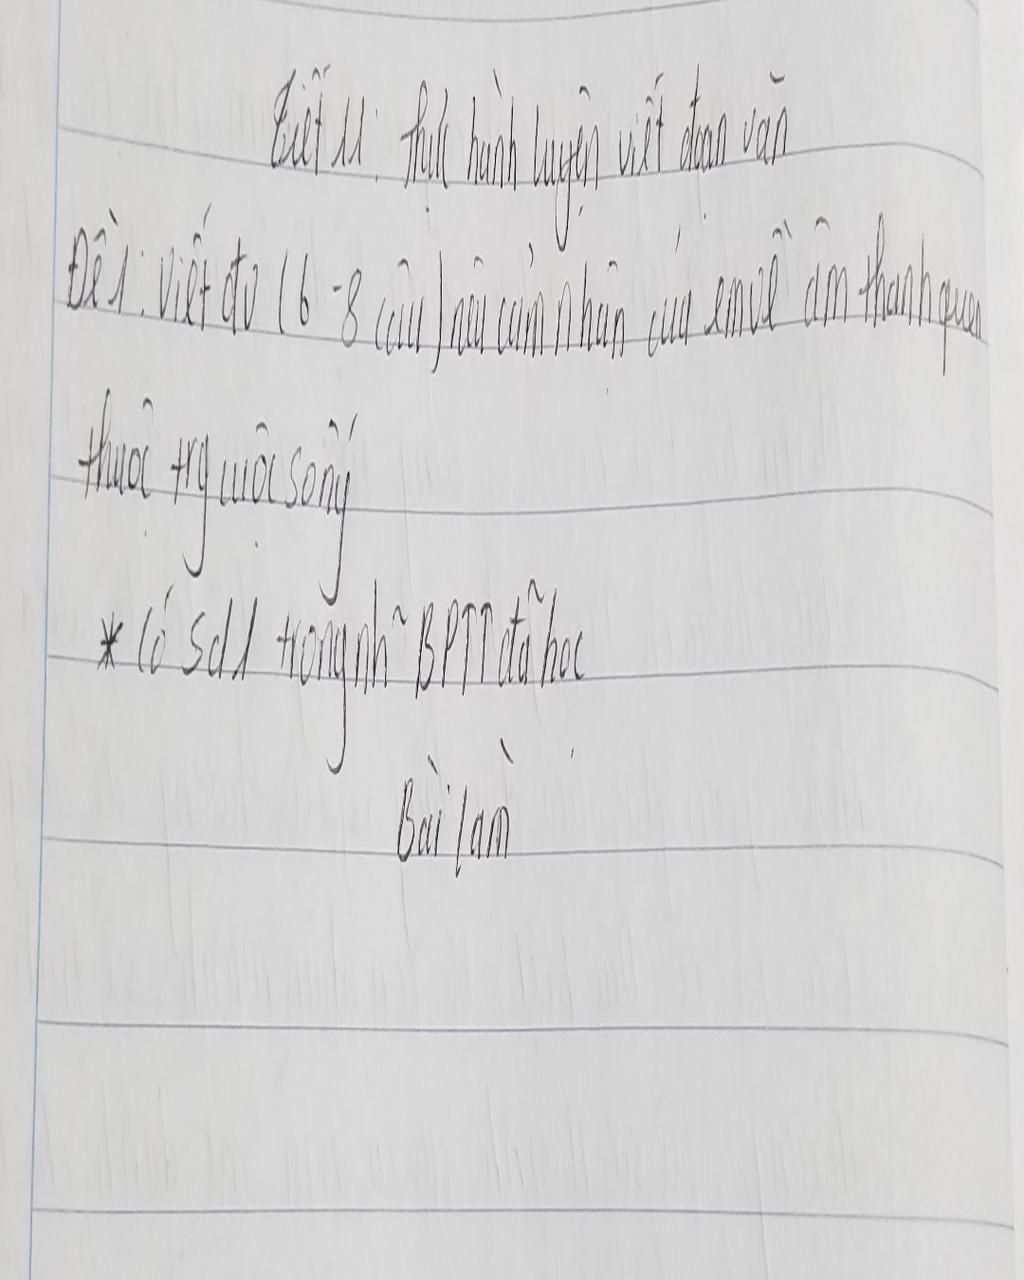 Tiết 11: thực hành luyện viết đoạn văn
Đề 1: Viết đv (6-8 câu) nêu cảm nhận của em về âm thanh quen
thuộc trg cuộc sống
* Có sd 1 trong nh~ BPTT đã học
Bài làm